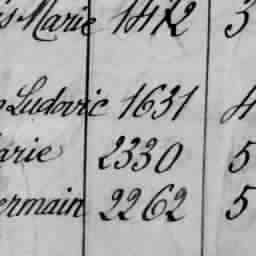 is Marie 1472 3
Ludovic 1631 4
arie 2330 5
ermain 2262 5